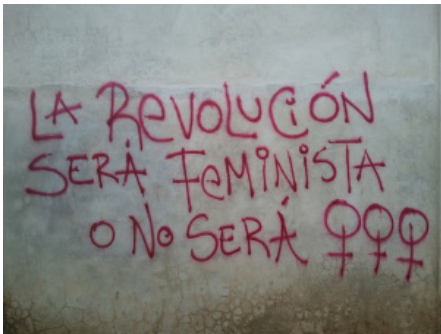 LA REVOLUCIÓN
SERÁ FEMINISTA
O NO SERÁ ♀♀♀